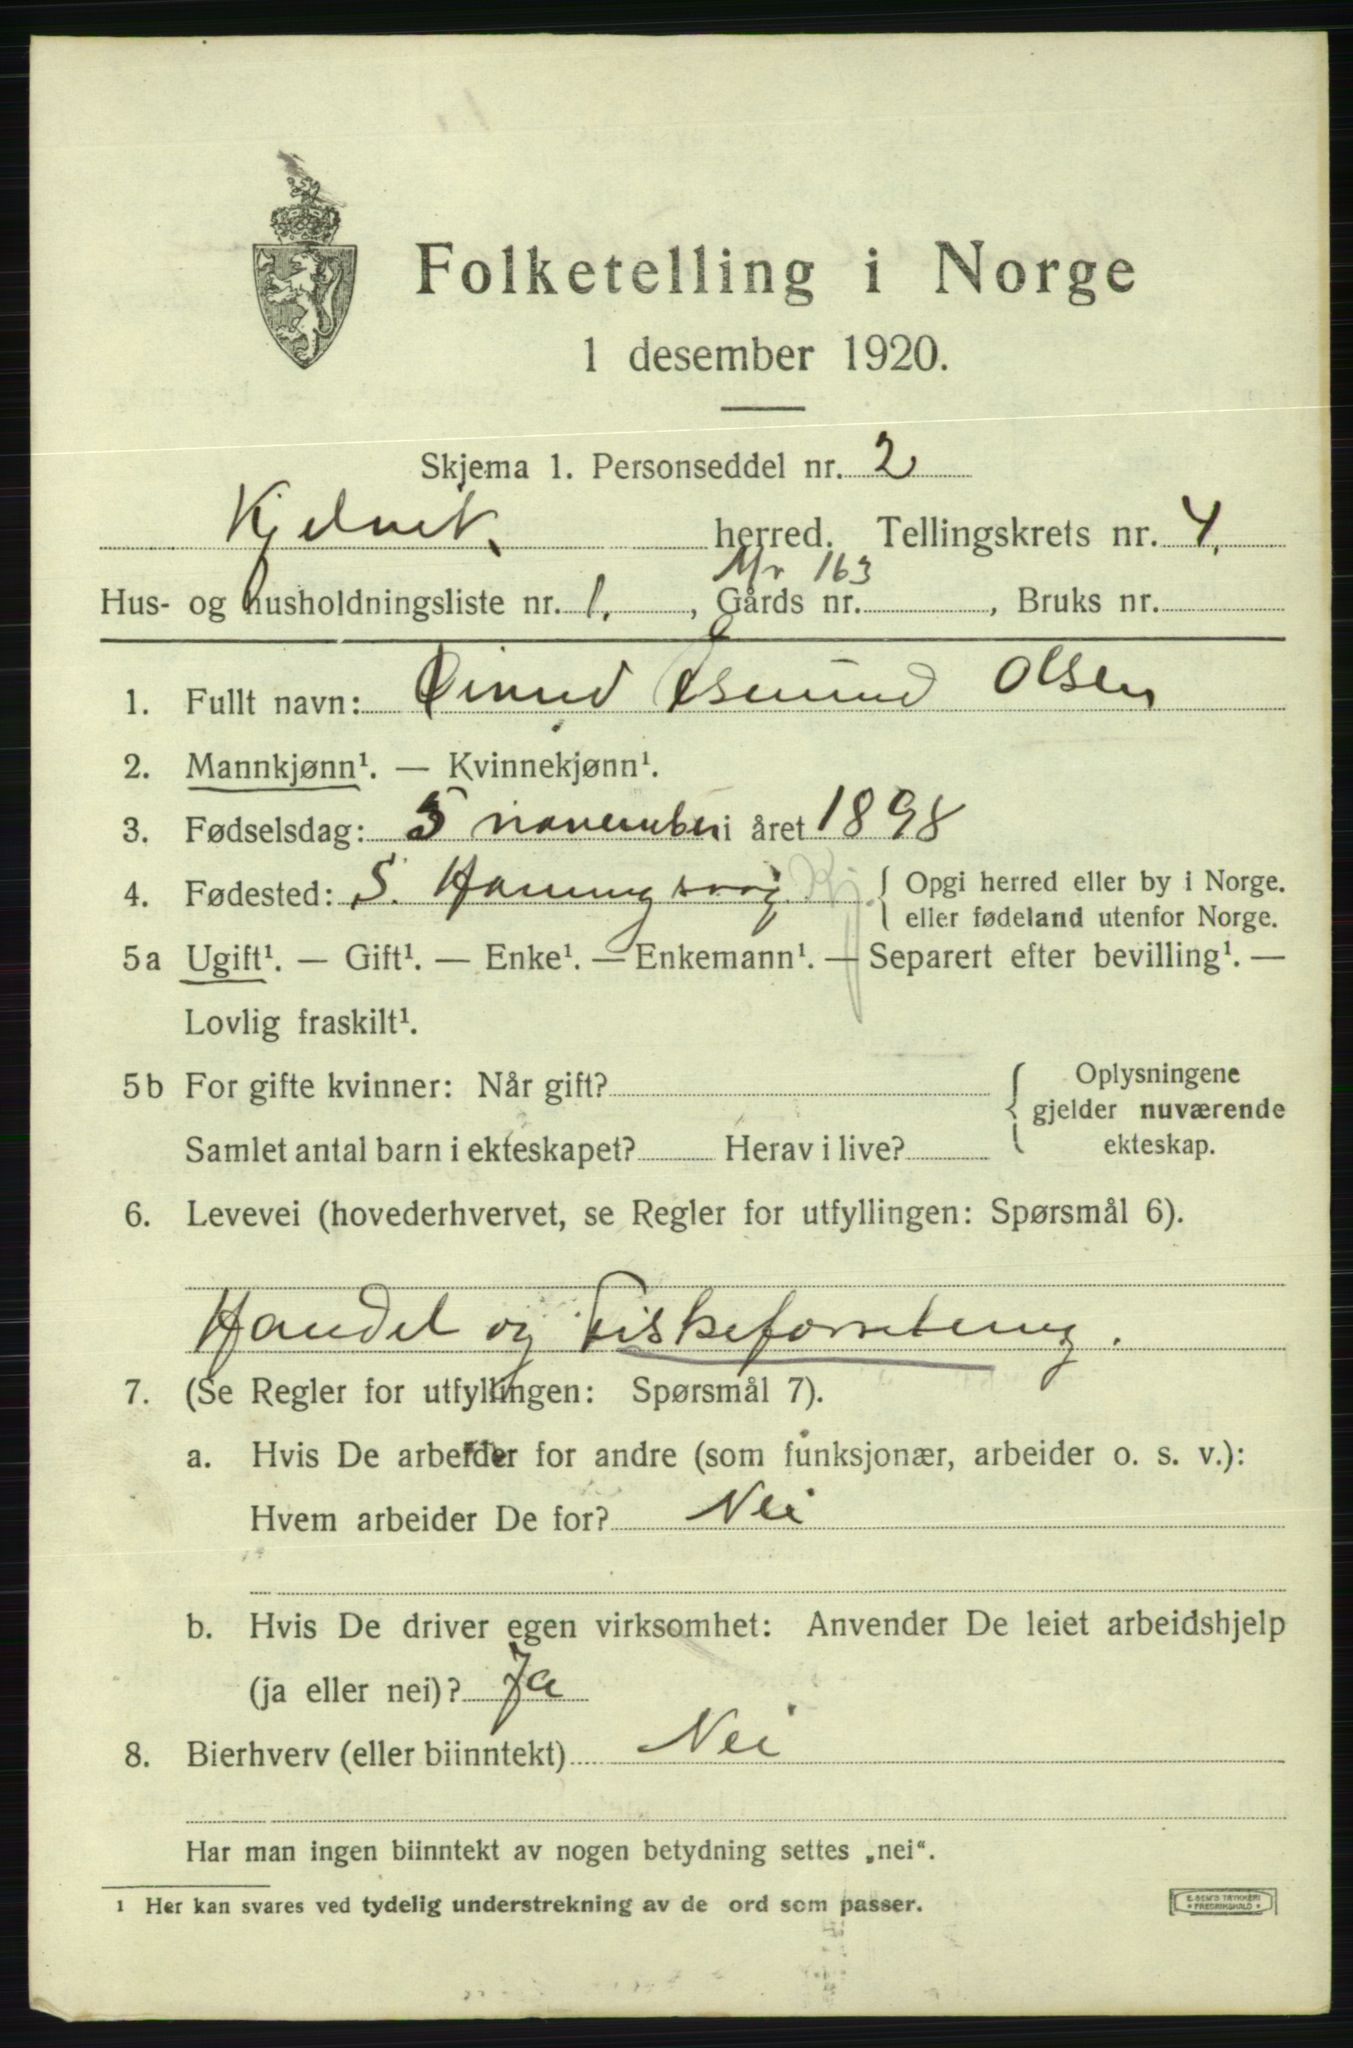 Folketelling i Norge
1 desember 1920.
Skjema 1. Personseddel nr. 2
Kjelvik. herred. Tellingskrets nr. 4.
Mr 163
Hus- og husholdningsliste nr. 1. , Gårds nr. , Bruks nr.
1. Fullt navn: Øivind Osmund Olsen
2. Mannkjønn¹. — Kvinnekjønn¹.
3. Fødselsdag: 5 november i året 1898
4. Fødested: S. Honningsvåg Kj. { Opgi herred eller by i Norge.
eller fødeland utenfor Norge.
5a Ugift¹. — Gift¹. — Enke¹. — Enkemann¹. — Separert efter bevilling¹. —
Lovlig fraskilt¹.
5b For gifte kvinner: Når gift?
Samlet antal barn i ekteskapet? Herav i live?
{ Oplysningene
gjelder nuværende
ekteskap.
6. Levevei (hovederhvervet, se Regler for utfyllingen: Spørsmål 6).
Handel og Fiskeforretning.
7. (Se Regler for utfyllingen: Spørsmål 7).
a. Hvis De arbeider for andre (som funksjonær, arbeider o. s. v.):
Hvem arbeider De for? Nei
b. Hvis De driver egen virksomhet: Anvender De leiet arbeidshjelp
(ja eller nei)? Ja
8. Bierhverv (eller biinntekt) Nei
Har man ingen biinntekt av nogen betydning settes „nei“.
¹ Her kan svares ved tydelig understrekning av de ord som passer.
E. SEM'S TRYKKERI
* FREDRIKSHALD *